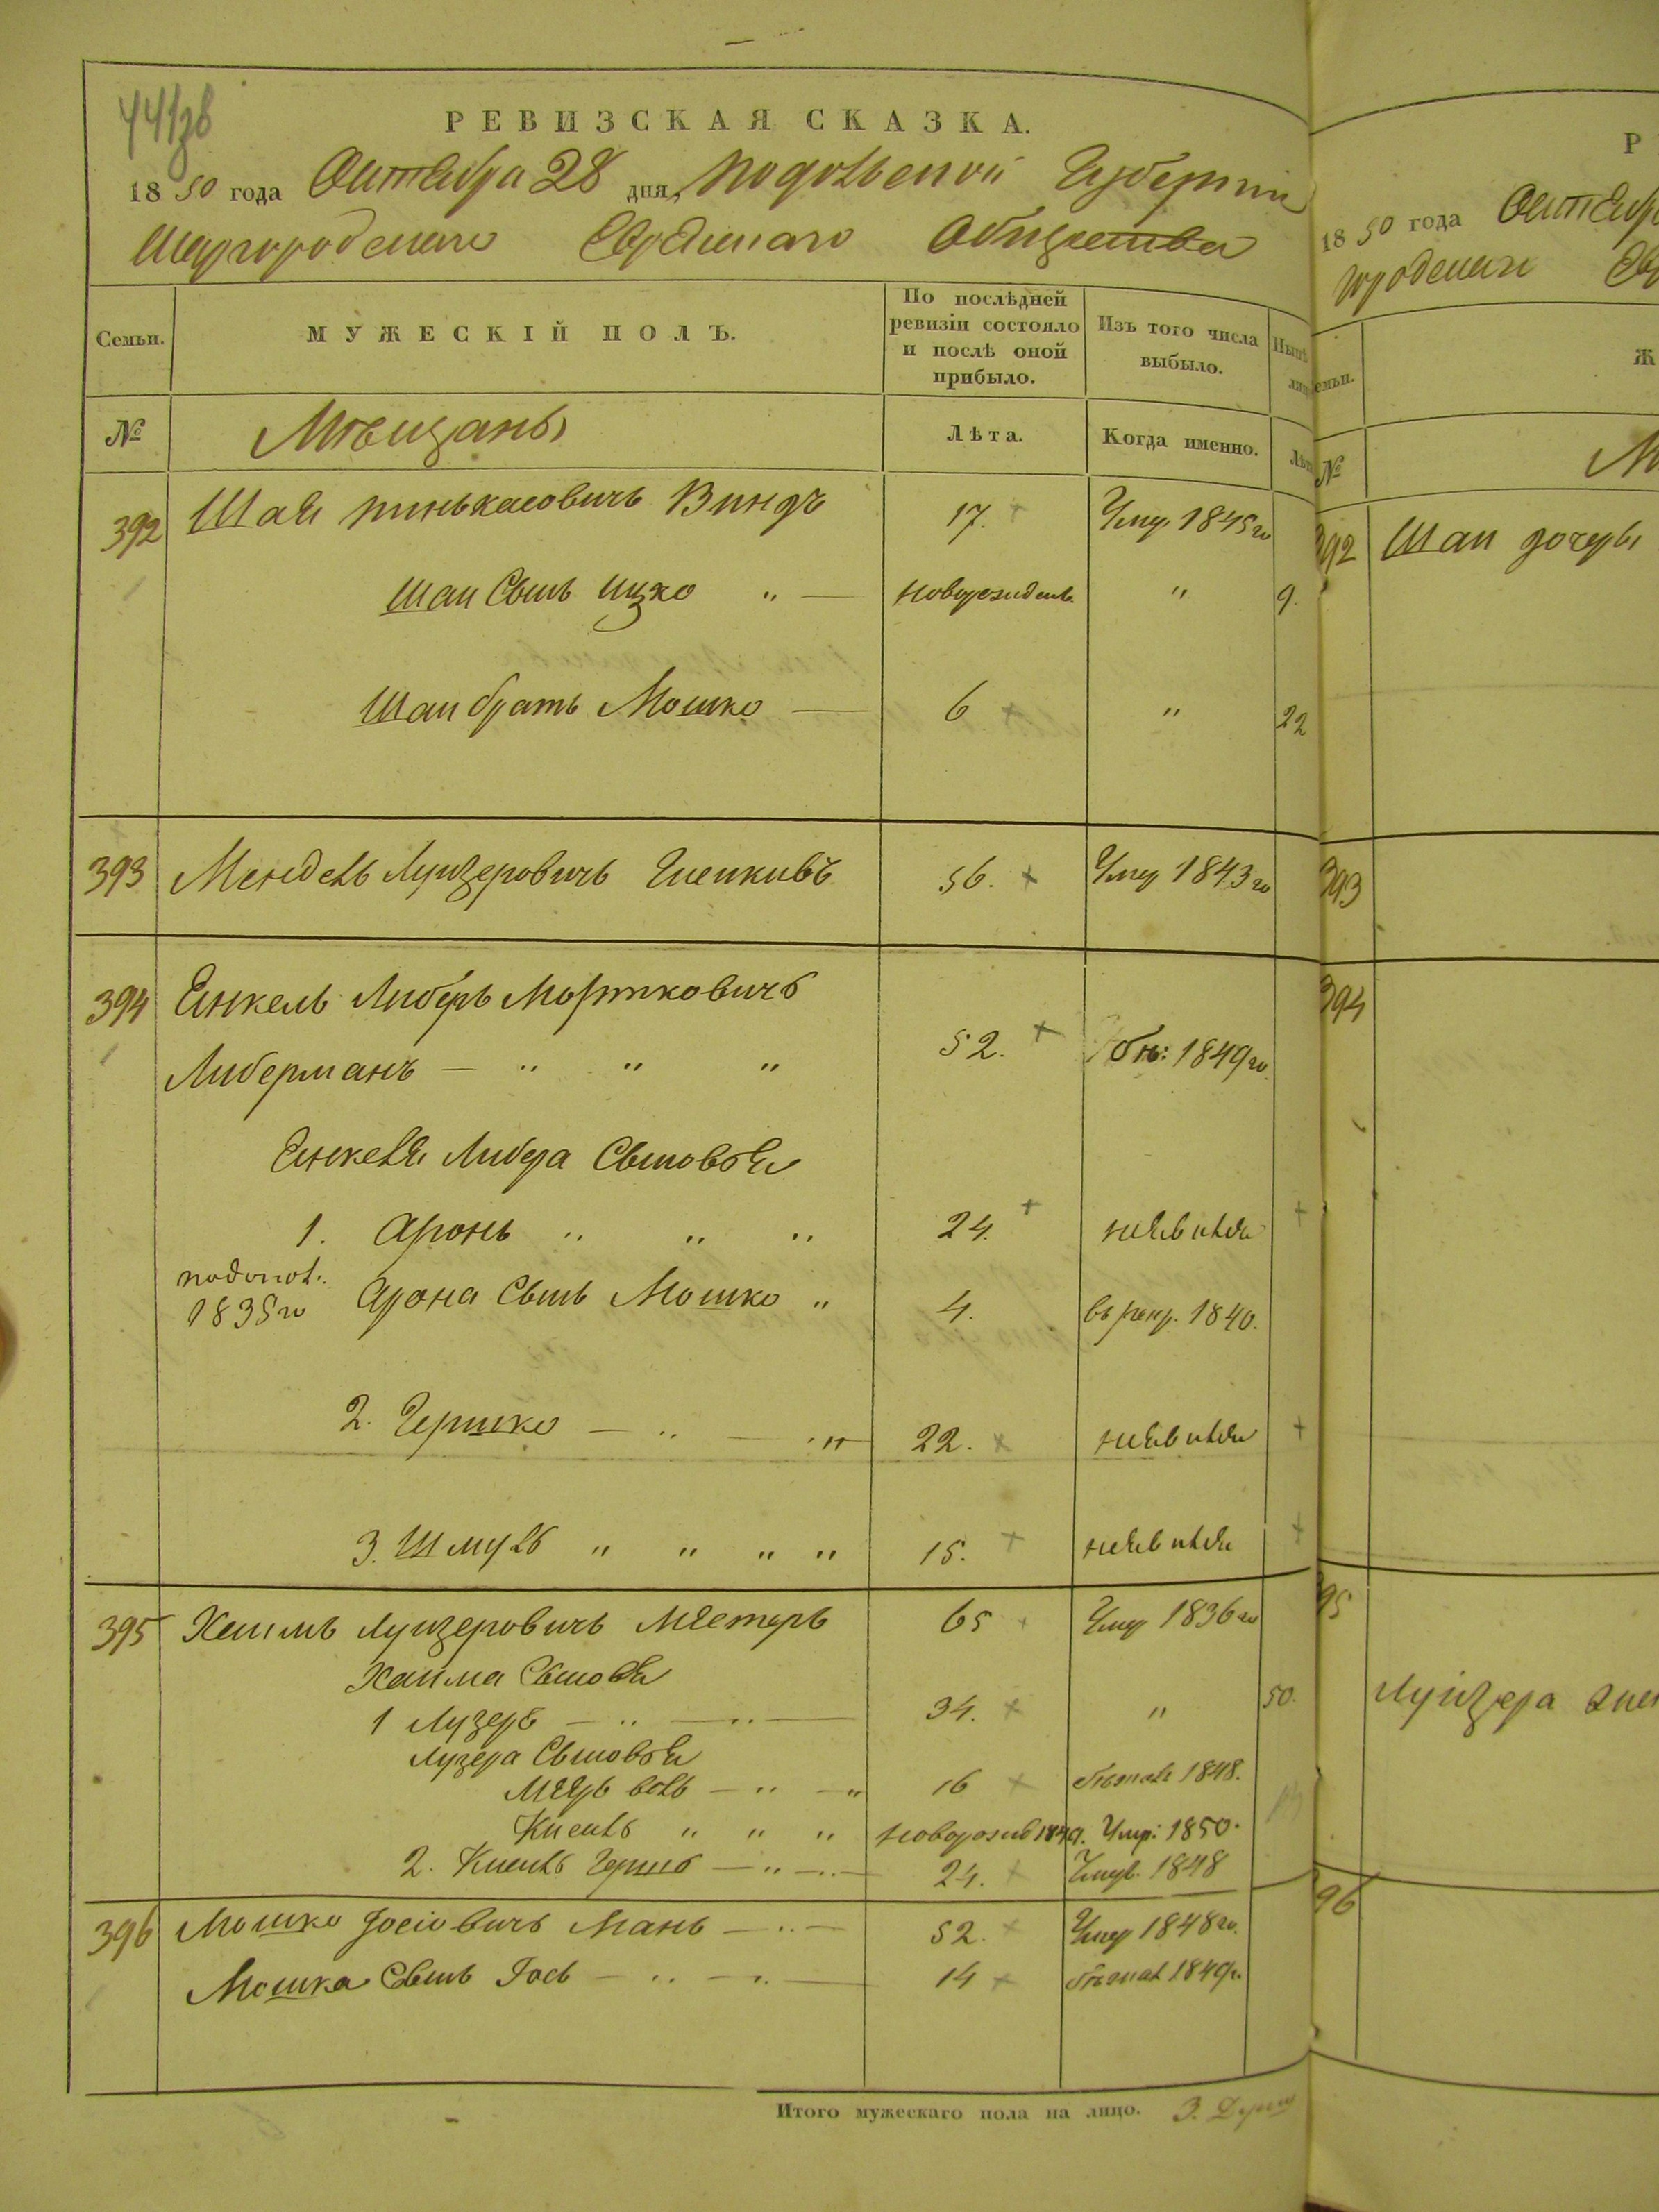 РЕВИЗСКАЯ СКАЗКА.
1850 года Октября 28 дня, Подольской Губерніи
Шаргородскаго Еврейскаго Общества
Семьи.
МУЖЕСКІЙ ПОЛЪ.
По послѣдней ревизіи состояло и послѣ оной прибыло.
Изъ того числа выбыло.
Нынѣ
№
Мѣщанъ
Лѣта.
Когда именно.
Лѣт
392 Шая Пинькасовичъ Виндъ 17. Умер. 1845го
Шаи Сынъ Ицко " — новорожден. " 9.
Шаи братъ Мошко — 6 " 22
393 Мендель Луизеровичъ 56. Умер 1843го
394 Янкель Либеръ Мортковичъ
Либерманъ — " " " 52. 1849го
Янкеля Либера Сыновья
1. Аронъ " " " 24. неявился
1835го Арона Сынъ Мошко " 4. въ рекр. 1840.
2. Гершко — " — " 22. неявился
3. Шмуль " " " " 15. неявился
395 Хаимъ Луизеровичъ 65 Умер 1836го
Хаима Сыновья
1 Лузеръ — " — " — 34. " 50.
Лузера Сыновья
— " — " 16 1848.
Кисиль " " " новорожд 1849. Умр: 1850.
2. Кисиль Гершъ — " — " — 24. 1848
396 Мошко Іосіовичъ Манъ — " — 52. Умер 1848го.
Мошка Сынъ Іось — " — " — 14 1849г.
Итого мужескаго пола на лицо.
Р
1850 года Октября
Ж
№
392 Шаи дочерь
393
394
95
Луизера
96